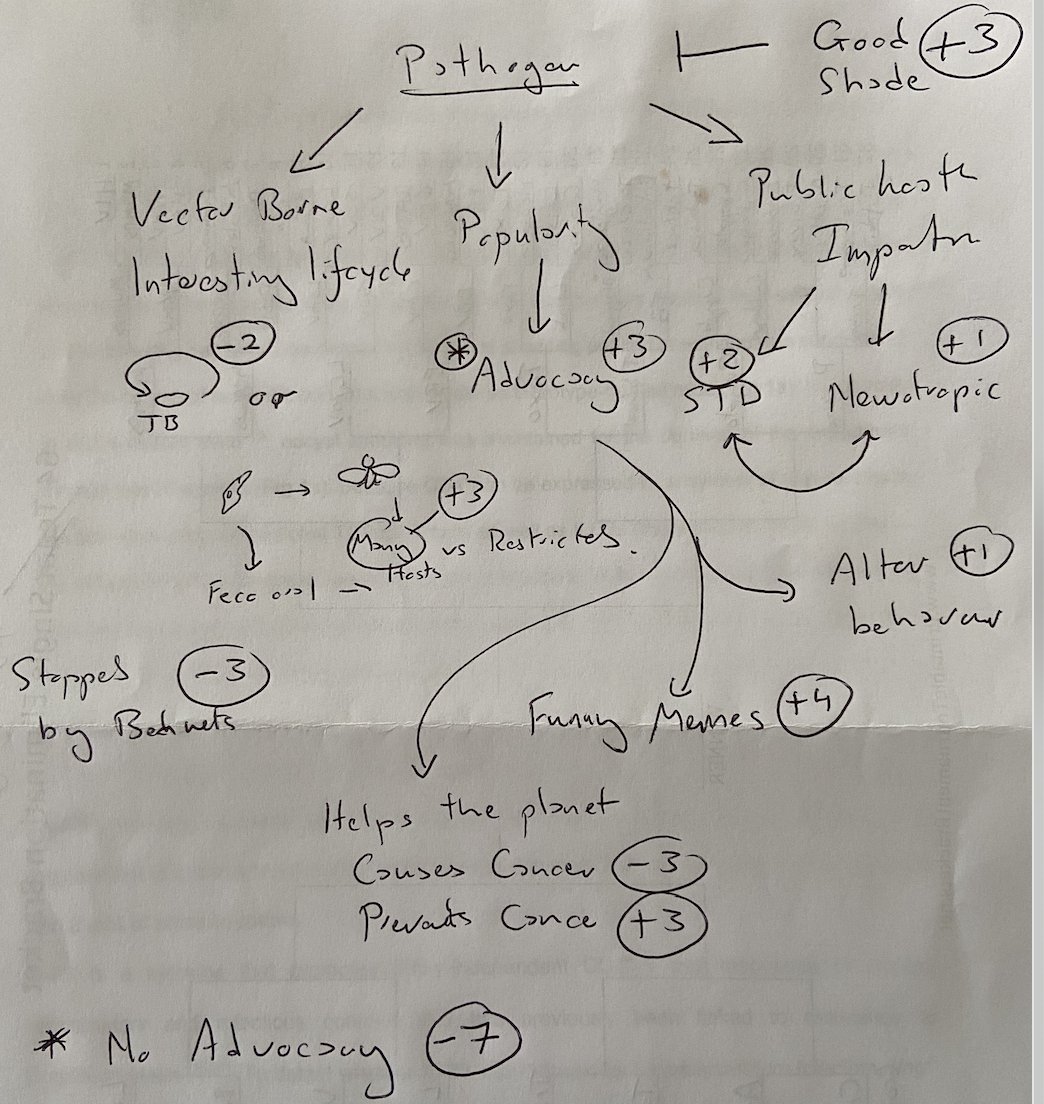 Pathogen
Good +3
Shade
Vector Borne
Interesting lifcycle
Popularity
Public heath
-2
TB
or
* Advocacy +3
+2
STD
+1
Neurotropic
+3
Many vs Restricted.
Hosts
Alter +1
behavour
Stopped -3
by Bednets
Funny Memes +4
Helps the planet
Causes Cancer -3
Prevents Cance +3
* No Advocacy -7